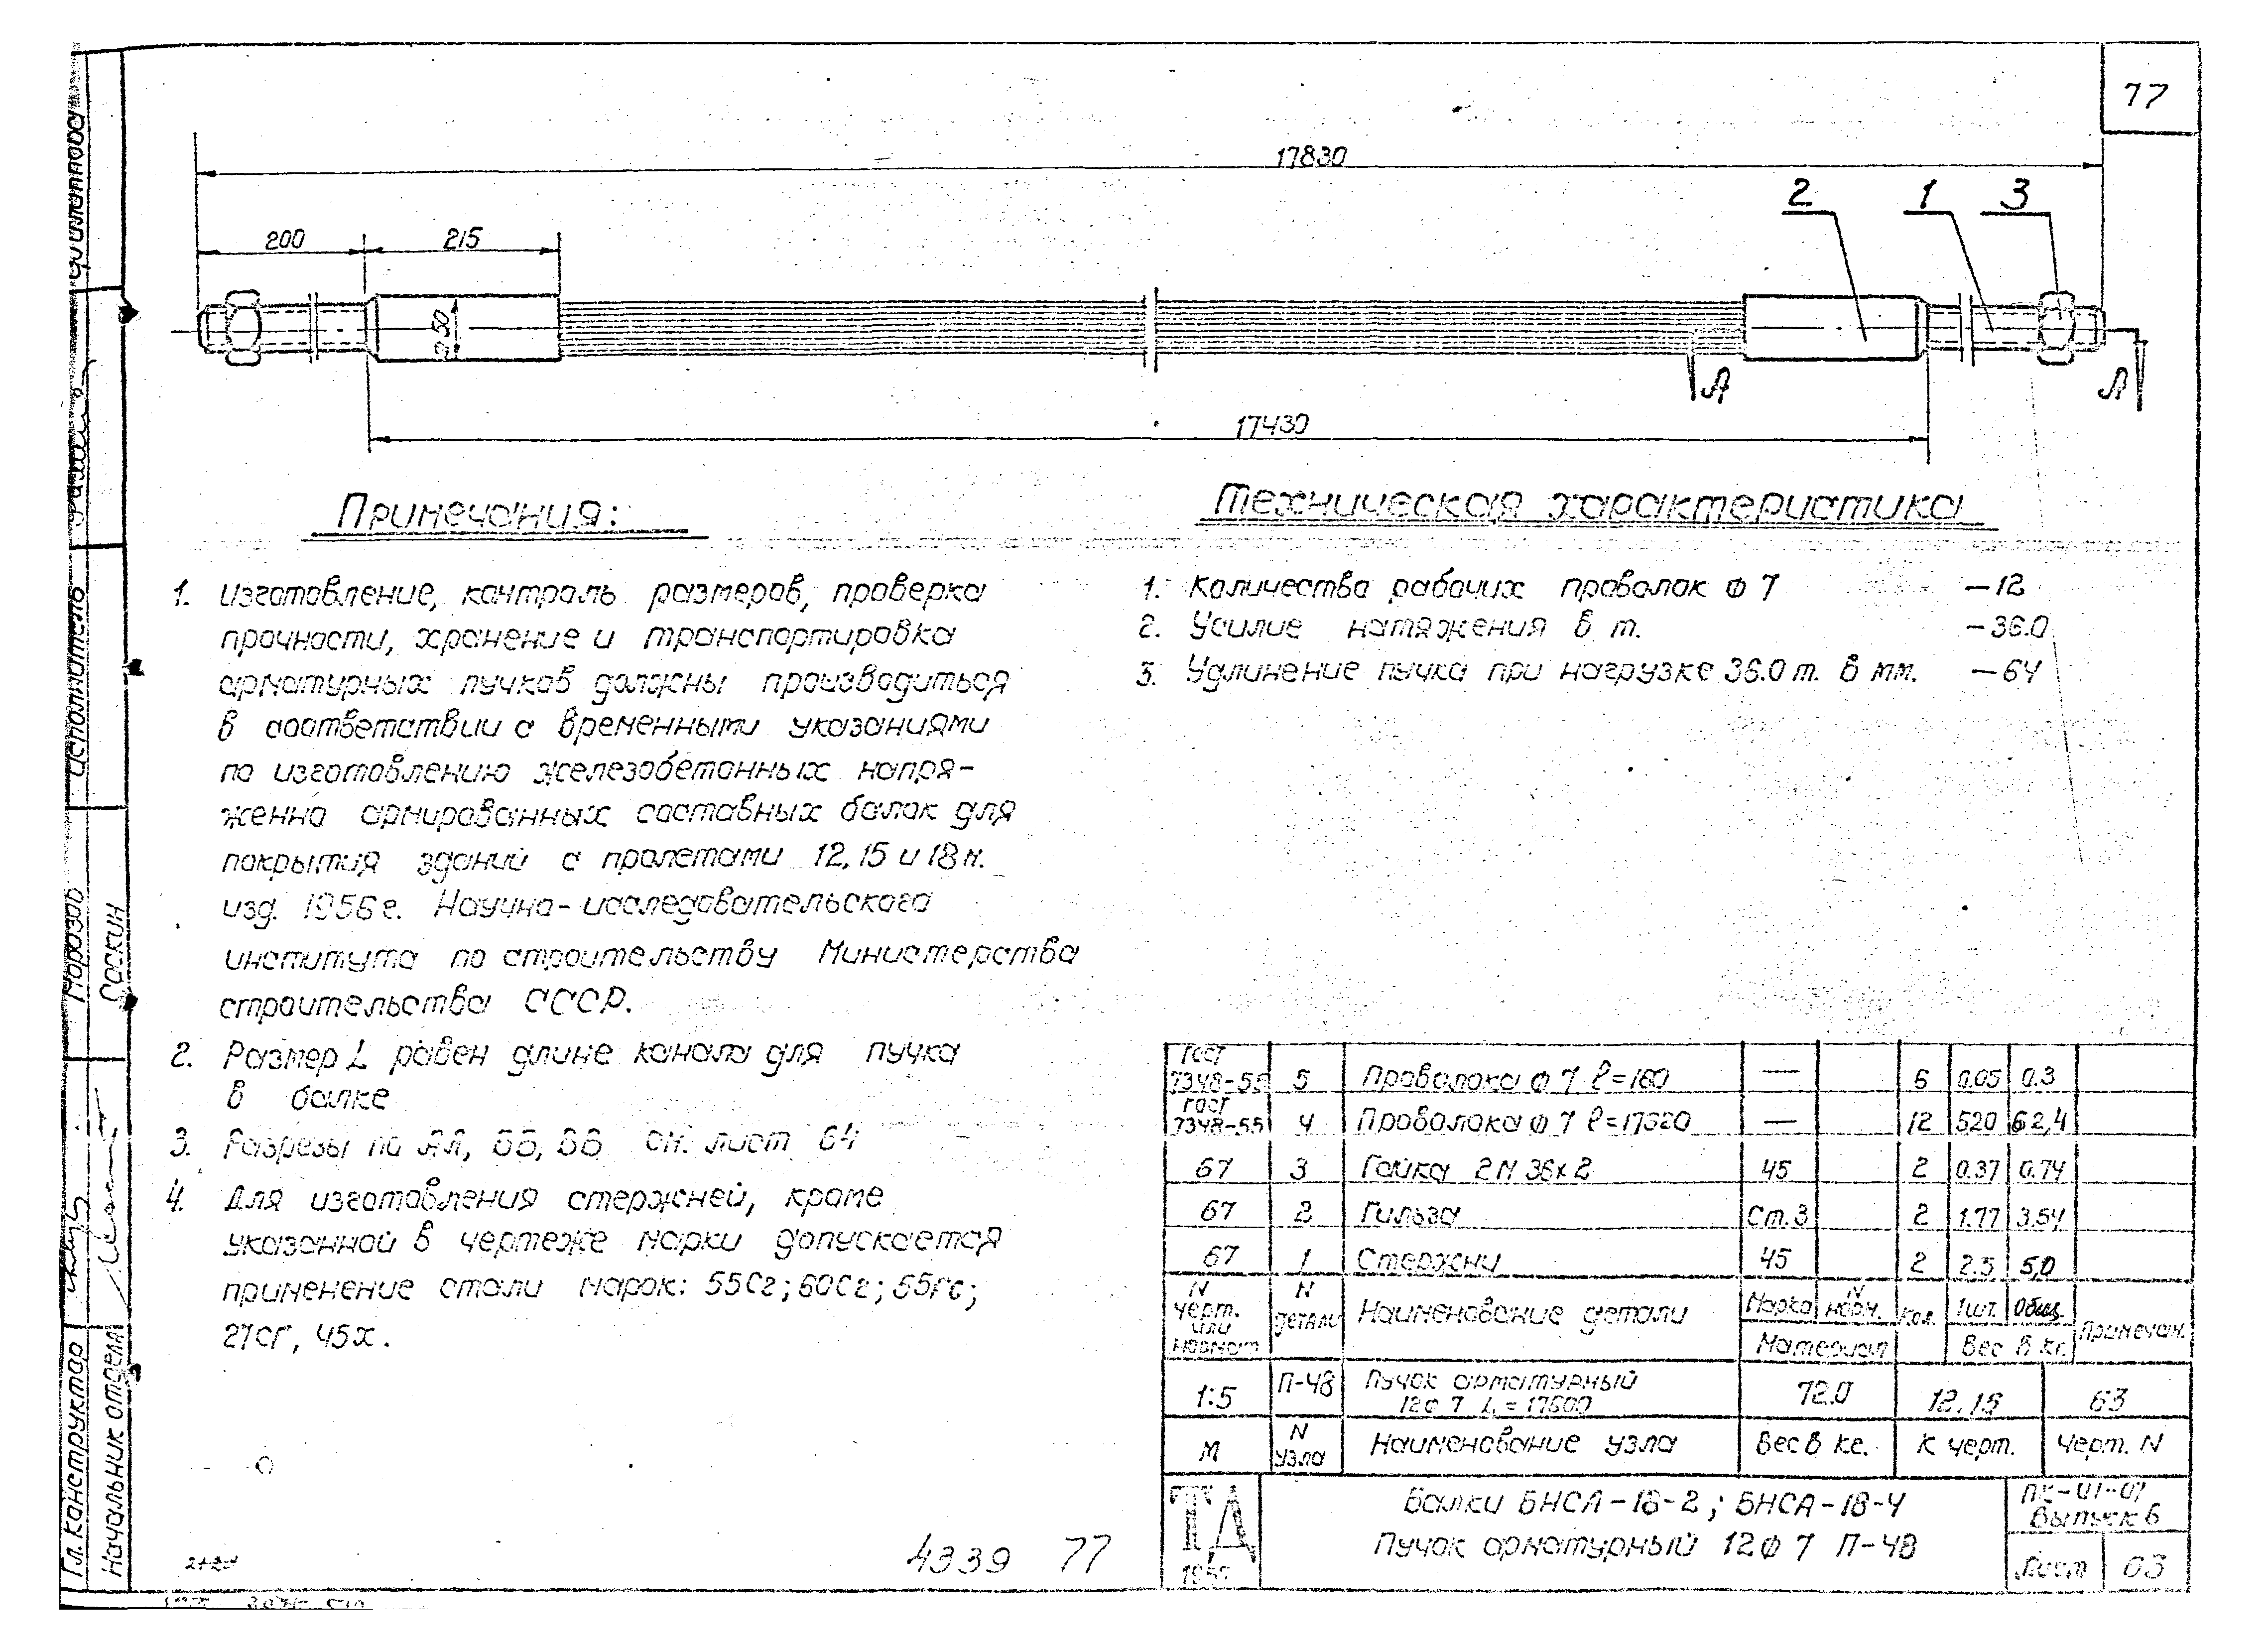 77
17830
2 1 3
200 215
⌀ 50
А А
17430
Примечания:
1. Изготовление, контроль размеров, проверка
прочности, хранение и транспортировка
арматурных пучков должны производиться
в соответствии с временными указаниями
по изготовлению железобетонных напря-
женно армированных составных балок для
покрытия зданий с пролетами 12, 15 и 18 м.
изд. 1956 г. Научно-исследовательского
института по строительству Министерства
строительства СССР.
2. Размер L равен длине канала для пучка
в балке
3. Разрезы по АА, ББ, ВВ см. лист 64
4. Для изготовления стержней, кроме
указанной в чертеже марки допускается
применение стали марок: 55Сг; 60Сг;
27СГ, 45Х.
Техническая характеристика
1. Количество рабочих проволок Ф 7 – 12
2. Усилие натяжения в т. – 36.0
3. Удлинение пучка при нагрузке 36.0 т. в мм. – 64
ГОСТ 7348-55 5 Проволока Ф 7 ℓ=160 — 6 0.05 0.3
ГОСТ 7348-55 4 Проволока Ф 7 — 12 520 62,4
67 3 Гайка 2М 36х2 45 2 0.37 0.74
67 2 Гильза Ст.3 2 1.77 3.54
67 1 Стержни 45 2 2.5 5,0
N черт. или нормат N детали Наименование детали Марка N норм. Кол. 1 шт. Общ. Примечан.
Материал Вес в кг.
1:5 П-48 Пучок арматурный 72.0 12, 15 63
12Ф 7
М N узла Наименование узла Вес в кг. К черт. Черт. N
ТД Балки БНСА-18-2; БНСА-18-4 ПК-01-07
Выпуск 6
Пучок арматурный 12Ф 7 П-48
Лист 63
4339 77
Гл. конструктор
Начальник отдела
Морозов
Соскин
Исполнитель